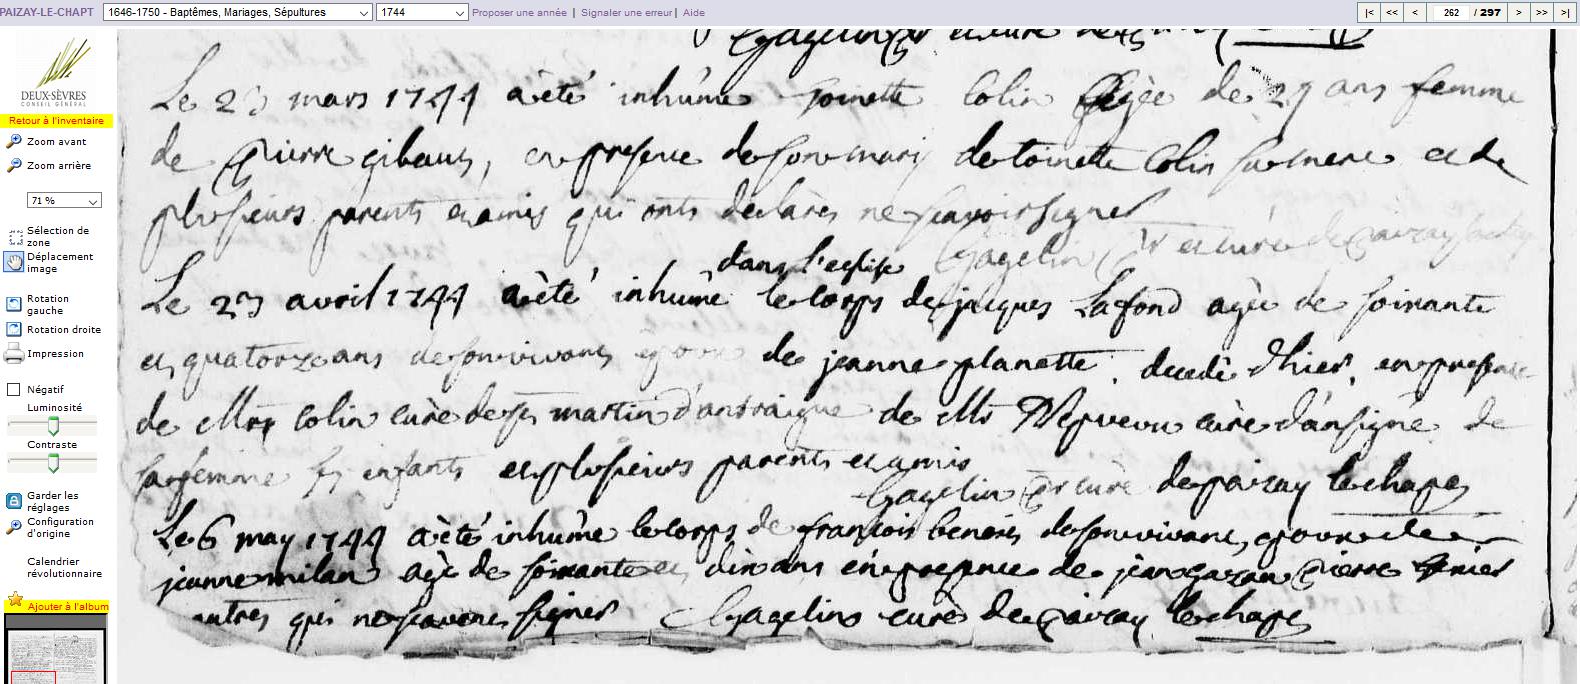 PAIZAY-LE-CHAPT 1646-1750 - Baptêmes, Mariages, Sépultures 1744 Proposer une année | Signaler une erreur | Aide |< << < 262 / 297 > >> >|
DEUX-SÈVRES
CONSEIL GÉNÉRAL
Retour à l'inventaire
Zoom avant
Zoom arrière
71 %
Sélection de
zone
Déplacement
image
Rotation
gauche
Rotation droite
Impression
Négatif
Luminosité
Contraste
Garder les
réglages
Configuration
d'origine
Calendrier
révolutionnaire
Ajouter à l'album
Gagelin
Le 23 mars 1744 a èté inhûme toinette Colin agèe de 29 ans femme
de pierre gibaut, en presence de son mary de toinette Colin sa mere et de
plusieurs parents et amis qui onts declarès ne scavoir signer
Gagelin pr et curè de paizay
dans l'eglise
Le 23 avril 1744 a èté inhûmè le corps de jacques Lafond agèe de soixante
et quatorze ans de son vivant epoux de jeanne planette, decedè d'hier, en presence
de Mr Colin curè de st martin d'antraigue de Mr Nepveu curè d'ansignè de
sa femme ses enfants et plusieurs parents et amis
Gagelin pr curè de paizay le chapt
Le 6 may 1744 a èté inhûme le corps de françois benoist de son vivant, epoux de
jeanne milan agè de soixante et dix ans en presence de jean pierre
autres qui ne scavent signer Gagelin curè de paizay le chapt